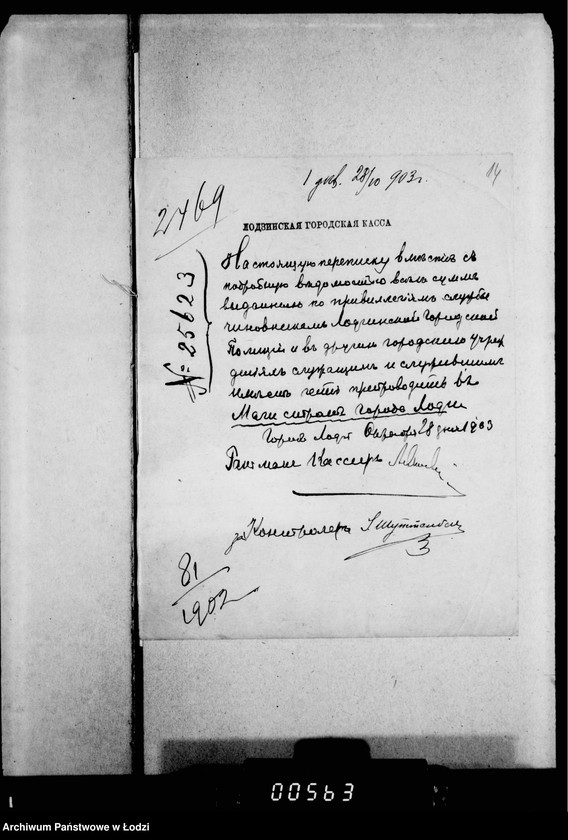 1 дѣл. 28/10 903 г.
14
2769
ЛОДЗИНСКАЯ ГОРОДСКАЯ КАССА
№ 25623
Настоящую переписку вмѣстѣ съ
подробную вѣдомостью всѣхъ суммъ
выданнымъ по привиллегіямъ службы
чиновникамъ Лодзинской Городской
Полиціи и въ другимъ городскимъ учреж
деніямъ служащимъ и служившимъ
имѣетъ честь препроводить въ
Магистратъ города Лодзи
Городъ Лодзь Октября 28 дня 1903
Кассиръ
за Контролера
81
1902
00563
Archiwum Państwowe w Łodzi